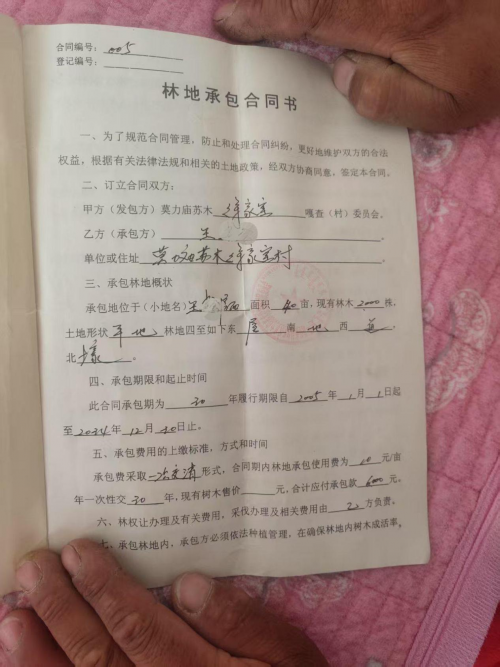 合同编号：005
登记编号：
林地承包合同书
一、为了规范合同管理，防止和处理合同纠纷，更好地维护双方的合法
权益，根据有关法律法规和相关的土地政策，经双方协商同意，签定本合同。
二、订立合同双方：
甲方（发包方）莫力庙苏木 徐家窑 嘎查（村）委员会。
乙方（承包方） 王 。
单位或住址 莫力庙苏木徐家窑村
三、承包林地概状
承包地位于（小地名） 面积 40 亩，现有林木 2000 株，
土地形状 平地 林地四至如下东 南 地 西 道，
北 。
四、承包期限和起止时间
此合同承包期为 30 年履行期限自 2005 年 1 月 1 日起
至 2034 年 12 月 30 日止。
五、承包费用的上缴标准、方式和时间
承包费采取 一次交清 形式，合同期内林地承包使用费为 元/亩
年一次性交 30 年，现有树木售价 元，合计应付承包款 6000 元。
六、林权让办理及有关费用，采伐办理及相关费用由 乙 方负责。
七、承包林地内，承包方必须依法种植管理，在确保林地内树木成活率。